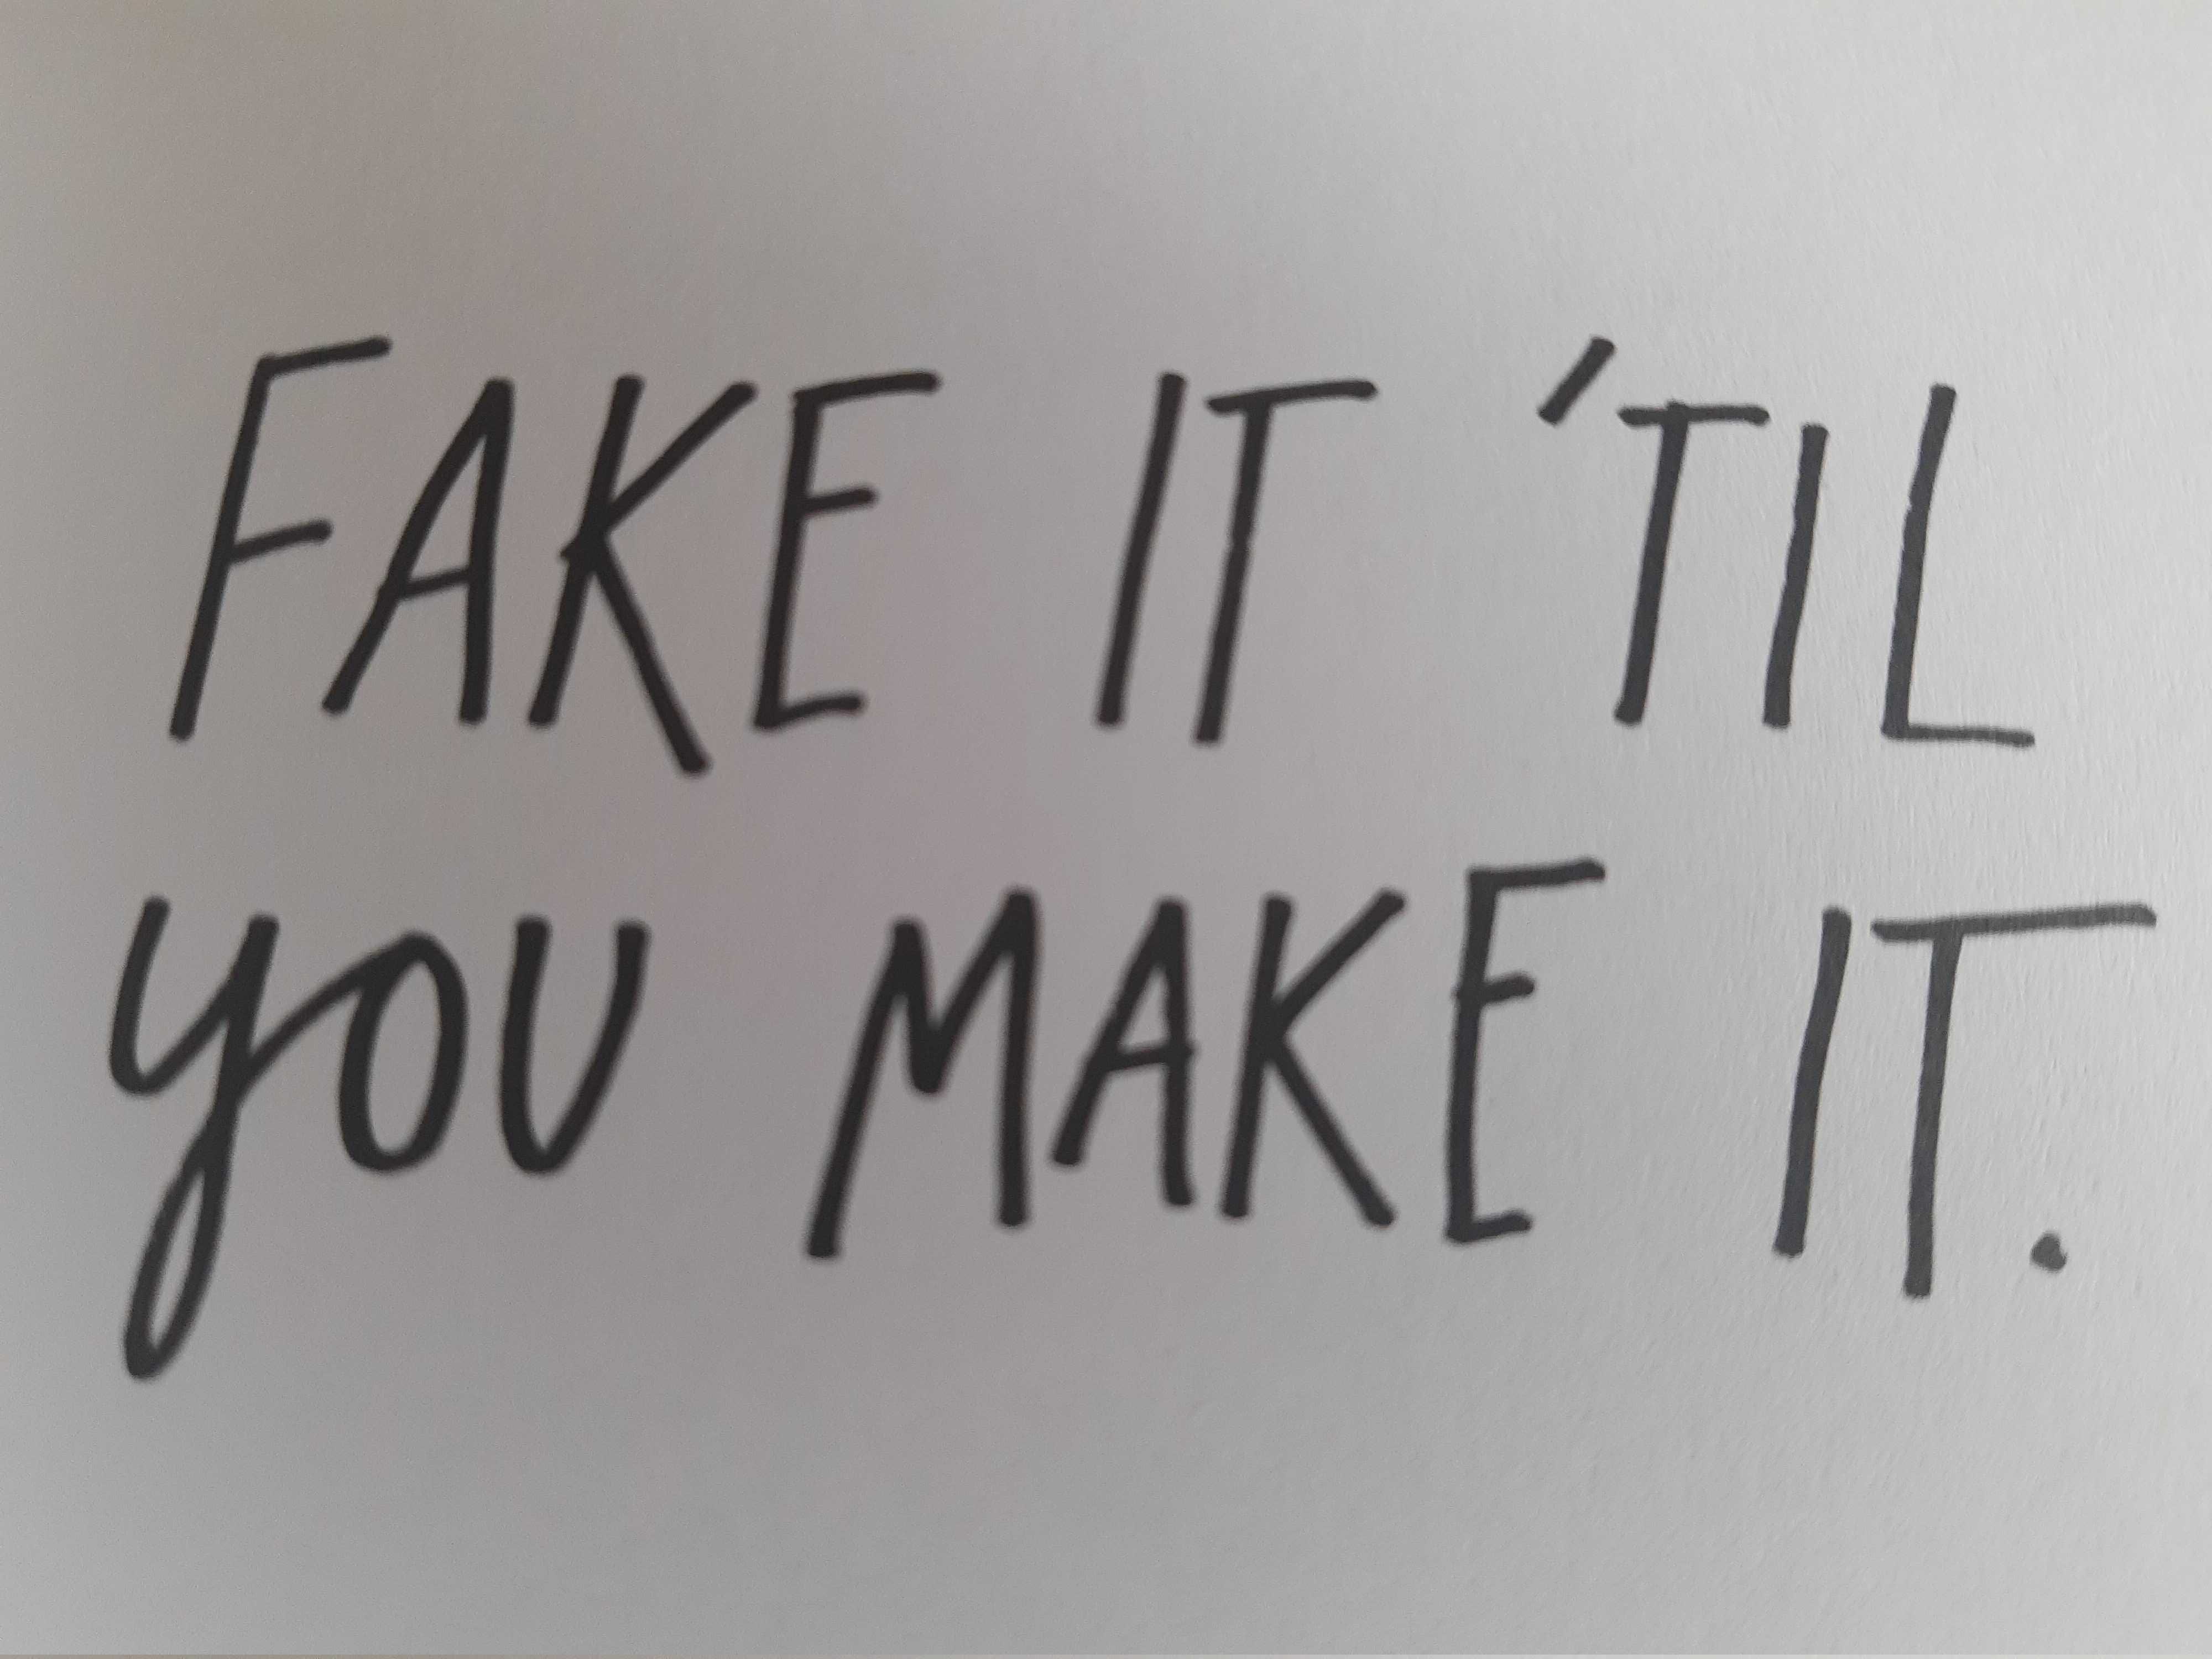 FAKE IT 'TIL
YOU MAKE IT.